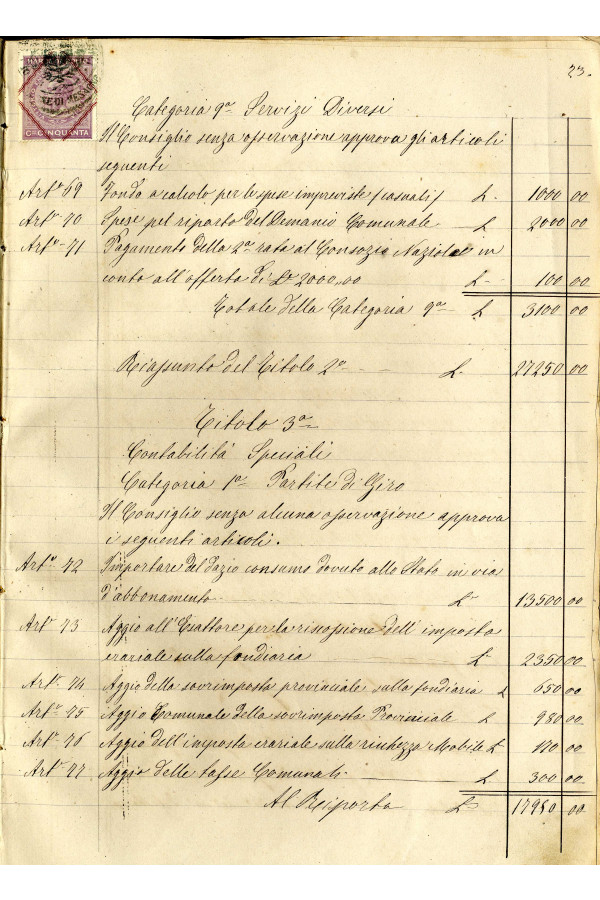 23.
MARCA DA BOLLO
C.CINQUANTA
Categoria 9ª Servizi Diversi
Il Consiglio senza osservazione approva gli articoli
seguenti
Artº 69 Fondo a calcolo per le spese impreviste (casuali) L. 1000 00
Artº 70 Spese pel riparto del Demanio Comunale L 2000 00
Artº 71 Pagamento della 2ª rata al Consozio Nazionale in
conto all'offerta di L 2000,,00 L 100 00
Totale della Categoria 9ª L 3100 00
Riassunto del Titolo 2º L. 27250 00
Titolo 3º
Contabilità Speciali
Categoria 1ª Partite di Giro
Il Consiglio senza alcuna osservazione approva
i seguenti articoli.
Artº 72 Importare del dazio consumo dovuto allo Stato in via
d'abbonamento L 13500 00
Artº 73 Aggio all'Esattore per la riscossione dell'imposta
erariale sulla fondiaria L 2350 00
Artº 74 Aggio della sovrimposta provinciale sulla fondiaria L 650 00
Artº 75 Aggio Comunale della sovrimposta Provinciale L 980 00
Artº 76 Aggio dell'imposta erariale sulla ricchezza Mobile L 170 00
Artº 77 Aggio delle tasse Comunali L 300 00
Al Riporto L 17950 00